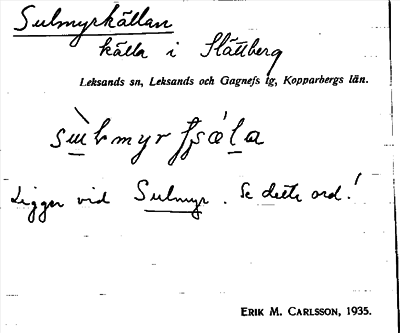 Sulmyrkällan
källa i Slättberg
Leksands sn, Leksands och Gagnefs tg, Kopparbergs län.
Ligger vid Sulmyr. Se detta ord!
ERIK M. CARLSSON, 1935.